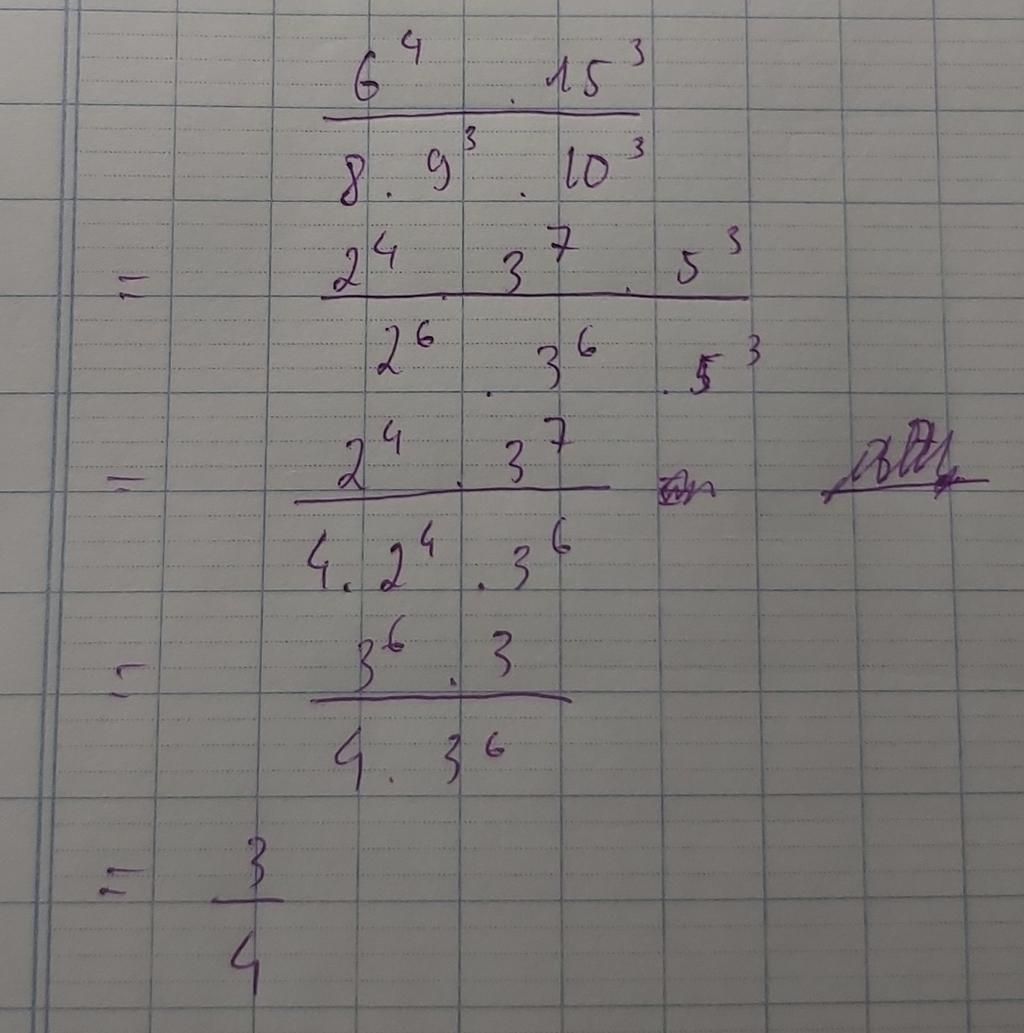 6⁴ . 15³
8 . 9³ . 10³
= 2⁴ . 3⁷ . 5³
2⁶ . 3⁶ . 5³
= 2⁴ . 3⁷
4 . 2⁴ . 3⁶
= 3⁶ . 3
4 . 3⁶
= 3
4